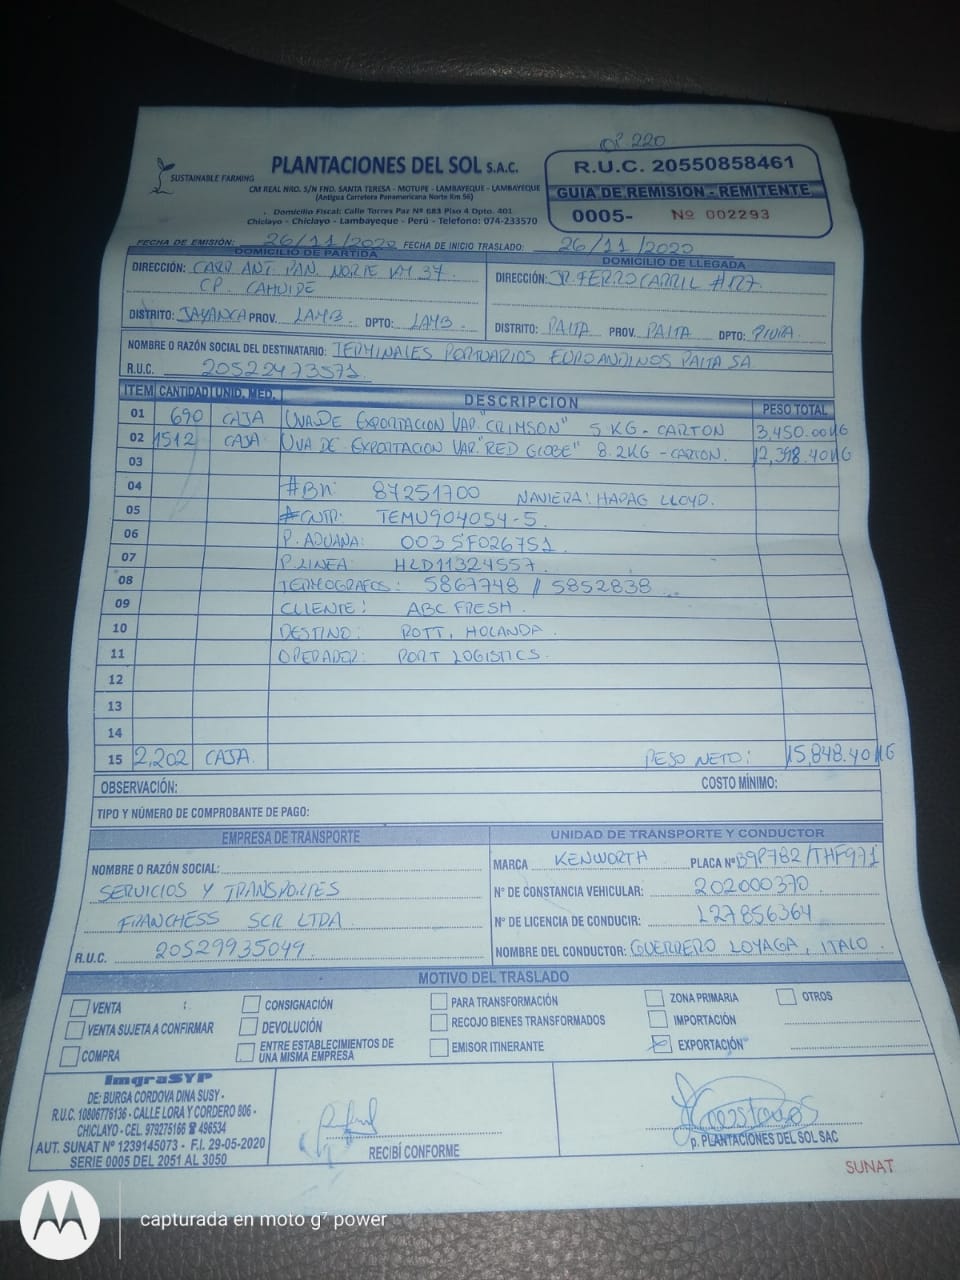 OP 220
SUSTAINABLE FARMING
PLANTACIONES DEL SOL S.A.C.
CM REAL NRO. S/N FND. SANTA TERESA - MOTUPE - LAMBAYEQUE - LAMBAYEQUE
(Antigua Carretera Panamericana Norte Km 56)
Domicilio Fiscal: Calle Torres Paz Nº 683 Piso 4 Dpto. 401
Chiclayo - Chiclayo - Lambayeque - Perú - Telefono: 074-233570
R.U.C. 20550858461
GUIA DE REMISION - REMITENTE
0005- Nº 002293
FECHA DE EMISIÓN: 26/11/2020 FECHA DE INICIO TRASLADO: 26/11/2020
DOMICILIO DE PARTIDA
DIRECCIÓN: CARR. ANT. PAN. NORTE KM 37
CP. CAHUIDE
DISTRITO: JAYANCA PROV. LAMB. DPTO: LAMB.
DOMICILIO DE LLEGADA
DIRECCIÓN: JR. FERROCARRIL #127
DISTRITO: PAITA PROV. PAITA DPTO: PIURA
NOMBRE O RAZÓN SOCIAL DEL DESTINATARIO: TERMINALES PORTUARIOS EUROANDINOS PAITA SA
R.U.C. 20522473571
ITEM CANTIDAD UNID. MED. DESCRIPCION PESO TOTAL
01 690 CAJA UVA DE EXPORTACION VAR. "CRIMSON" 5 KG - CARTON 3,450.00 KG
02 1512 CAJA UVA DE EXPORTACION VAR. "RED GLOBE" 8.2KG - CARTON. 12,398.40 KG
03
04 #BN: 87251700 NAVIERA: HAPAG LLOYD.
05 #CNTR: TEMU904054-5
06 P. ADUANA: 003SF026751
07 P. LINEA: HLD11324557
08 TERMOGRAFOS: 5867748 // 5852838
09 CLIENTE: ABC FRESH.
10 DESTINO: ROTT, HOLANDA.
11 OPERADOR: PORT LOGISTICS.
12
13
14
15 2,202 CAJA. PESO NETO: 15,848.40 KG
OBSERVACIÓN: COSTO MÍNIMO:
TIPO Y NÚMERO DE COMPROBANTE DE PAGO:
EMPRESA DE TRANSPORTE
NOMBRE O RAZÓN SOCIAL:
SERVICIOS Y TRANSPORTES
FRANCHESS SCR LTDA
R.U.C. 20529935049
UNIDAD DE TRANSPORTE Y CONDUCTOR
MARCA KENWORTH PLACA Nº B9P782/THF971
Nº DE CONSTANCIA VEHICULAR: 202000370
Nº DE LICENCIA DE CONDUCIR: L27856364
NOMBRE DEL CONDUCTOR: GUERRERO LOYAGA, ITALO
MOTIVO DEL TRASLADO
VENTA CONSIGNACIÓN PARA TRANSFORMACIÓN ZONA PRIMARIA OTROS
VENTA SUJETA A CONFIRMAR DEVOLUCIÓN RECOJO BIENES TRANSFORMADOS IMPORTACIÓN
COMPRA ENTRE ESTABLECIMIENTOS DE UNA MISMA EMPRESA EMISOR ITINERANTE EXPORTACIÓN
ImgraSYP
DE: BURGA CORDOVA DINA SUSY -
R.U.C. 10806776136 - CALLE LORA Y CORDERO 806 -
CHICLAYO - CEL 979275166 ☎ 496534
AUT. SUNAT Nº 1239145073 - F.I. 29-05-2020
SERIE 0005 DEL 2051 AL 3050
RECIBÍ CONFORME
p. PLANTACIONES DEL SOL SAC
SUNAT
capturada en moto g⁷ power